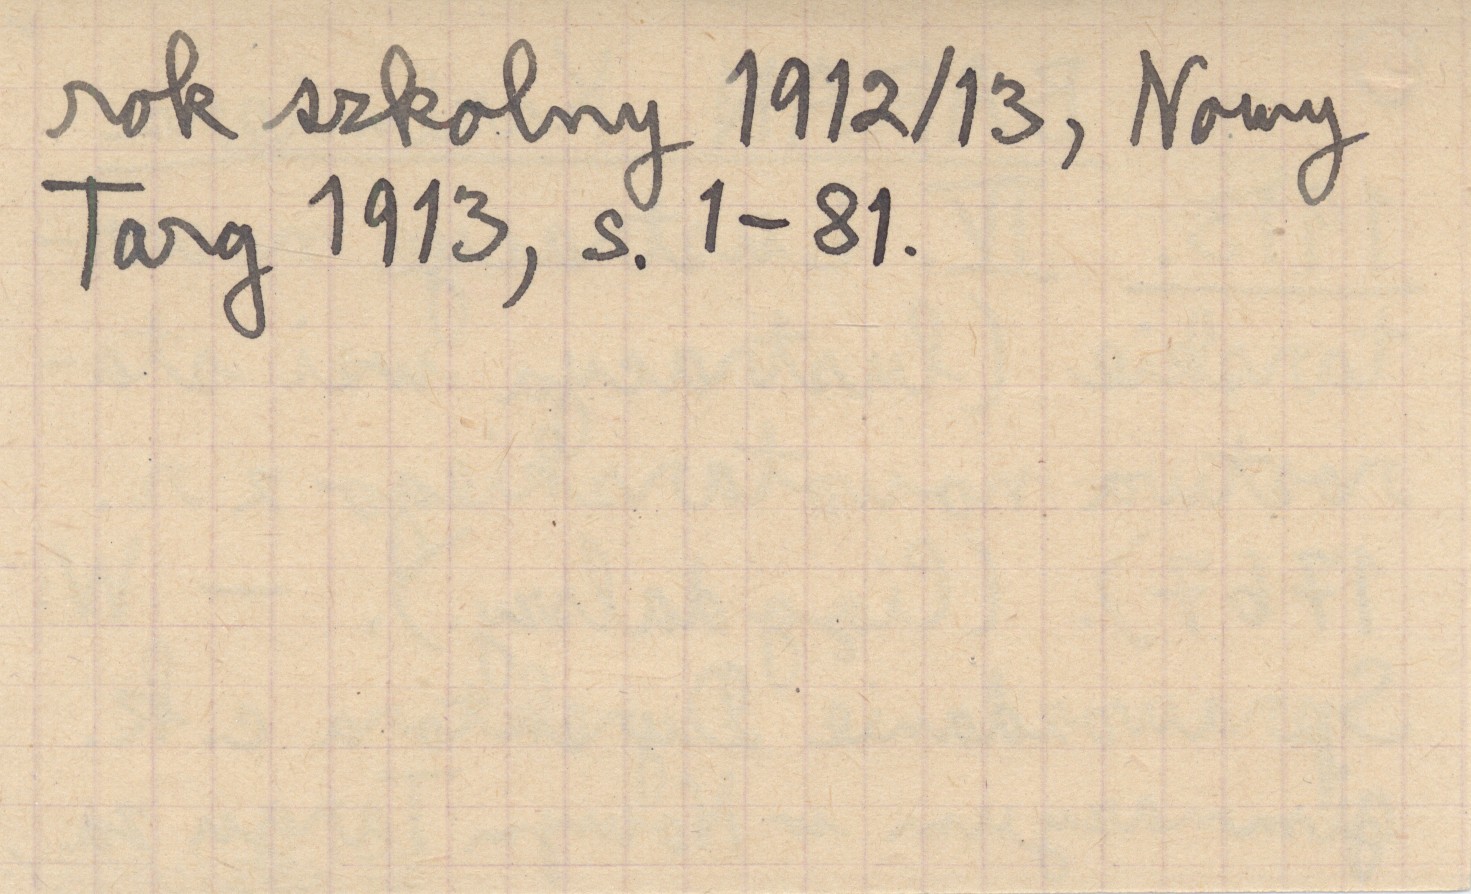 rok szkolny 1912/13, Nowy
Targ 1913, s. 1-81.